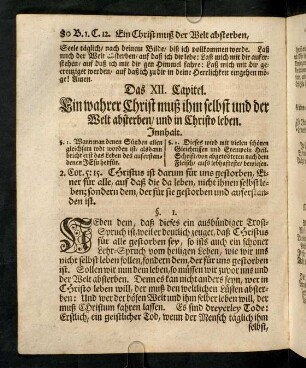 80 B. 1. C. 12. Ein Christ muß der Welt absterben,
Seele täglich/ nach deinem Bilde/ biß ich vollkommen werde. Laß
mich der Welt absterben/ auf daß ich dir lebe: Laß mich mit dir aufer-
stehen/ auf daß ich mit dir gen Himmel fahre: Laß mich mit dir ge-
creutziget werden/ auf daß ich zu dir in deine Herrlichkeit eingehen mö-
ge! Amen.
Das XII. Capitel.
Ein wahrer Christ muß ihm selbst und der
Welt absterben/ und in Christo leben.
Innhalt.
§. 1. Wann man denen Sünden allen
gleichsam todt worden ist: alsdann
bracht erst das Leben das auferstan-
denen JEsu herfür.
§. 2. Dieses wird mit vielen schönen
Gleichnissen und Exempeln Heil.
Schrift/ von abgetödteten nach dem
Fleisch/ aufs lebhafteste bewiesen.
2. Cor. 5: 15. Christus ist darum für uns gestorben/ Ei-
ner für alle, auf daß die da leben, nicht ihnen selbst le-
ben; sondern dem, der für sie gestorben und auferstan-
den ist.
§. 1.
Neben dem, daß dieses ein ausbündiger Trost-
Spruch ist, weil er deutlich zeuget, daß Christus
für alle gestorben sey, so ists auch ein schöner
Lehr-Spruch vom heiligen Leben, wie wir uns
nicht selbst leben sollen, sondern dem, der für uns gestorben
ist. Sollen wir nun dem leben, so müssen wir zuvor uns und
der Welt absterben. Denn es kan nicht anders seyn, wer in
Christo leben will, der muß den weltlichen Lüsten abster-
ben: Und wer der bösen Welt und ihm selber leben will, der
muß Christum fahren lassen. Es sind dreyerley Tode:
Erstlich, ein geistlicher Tod, wenn der Mensch täglich ihm
selbst,